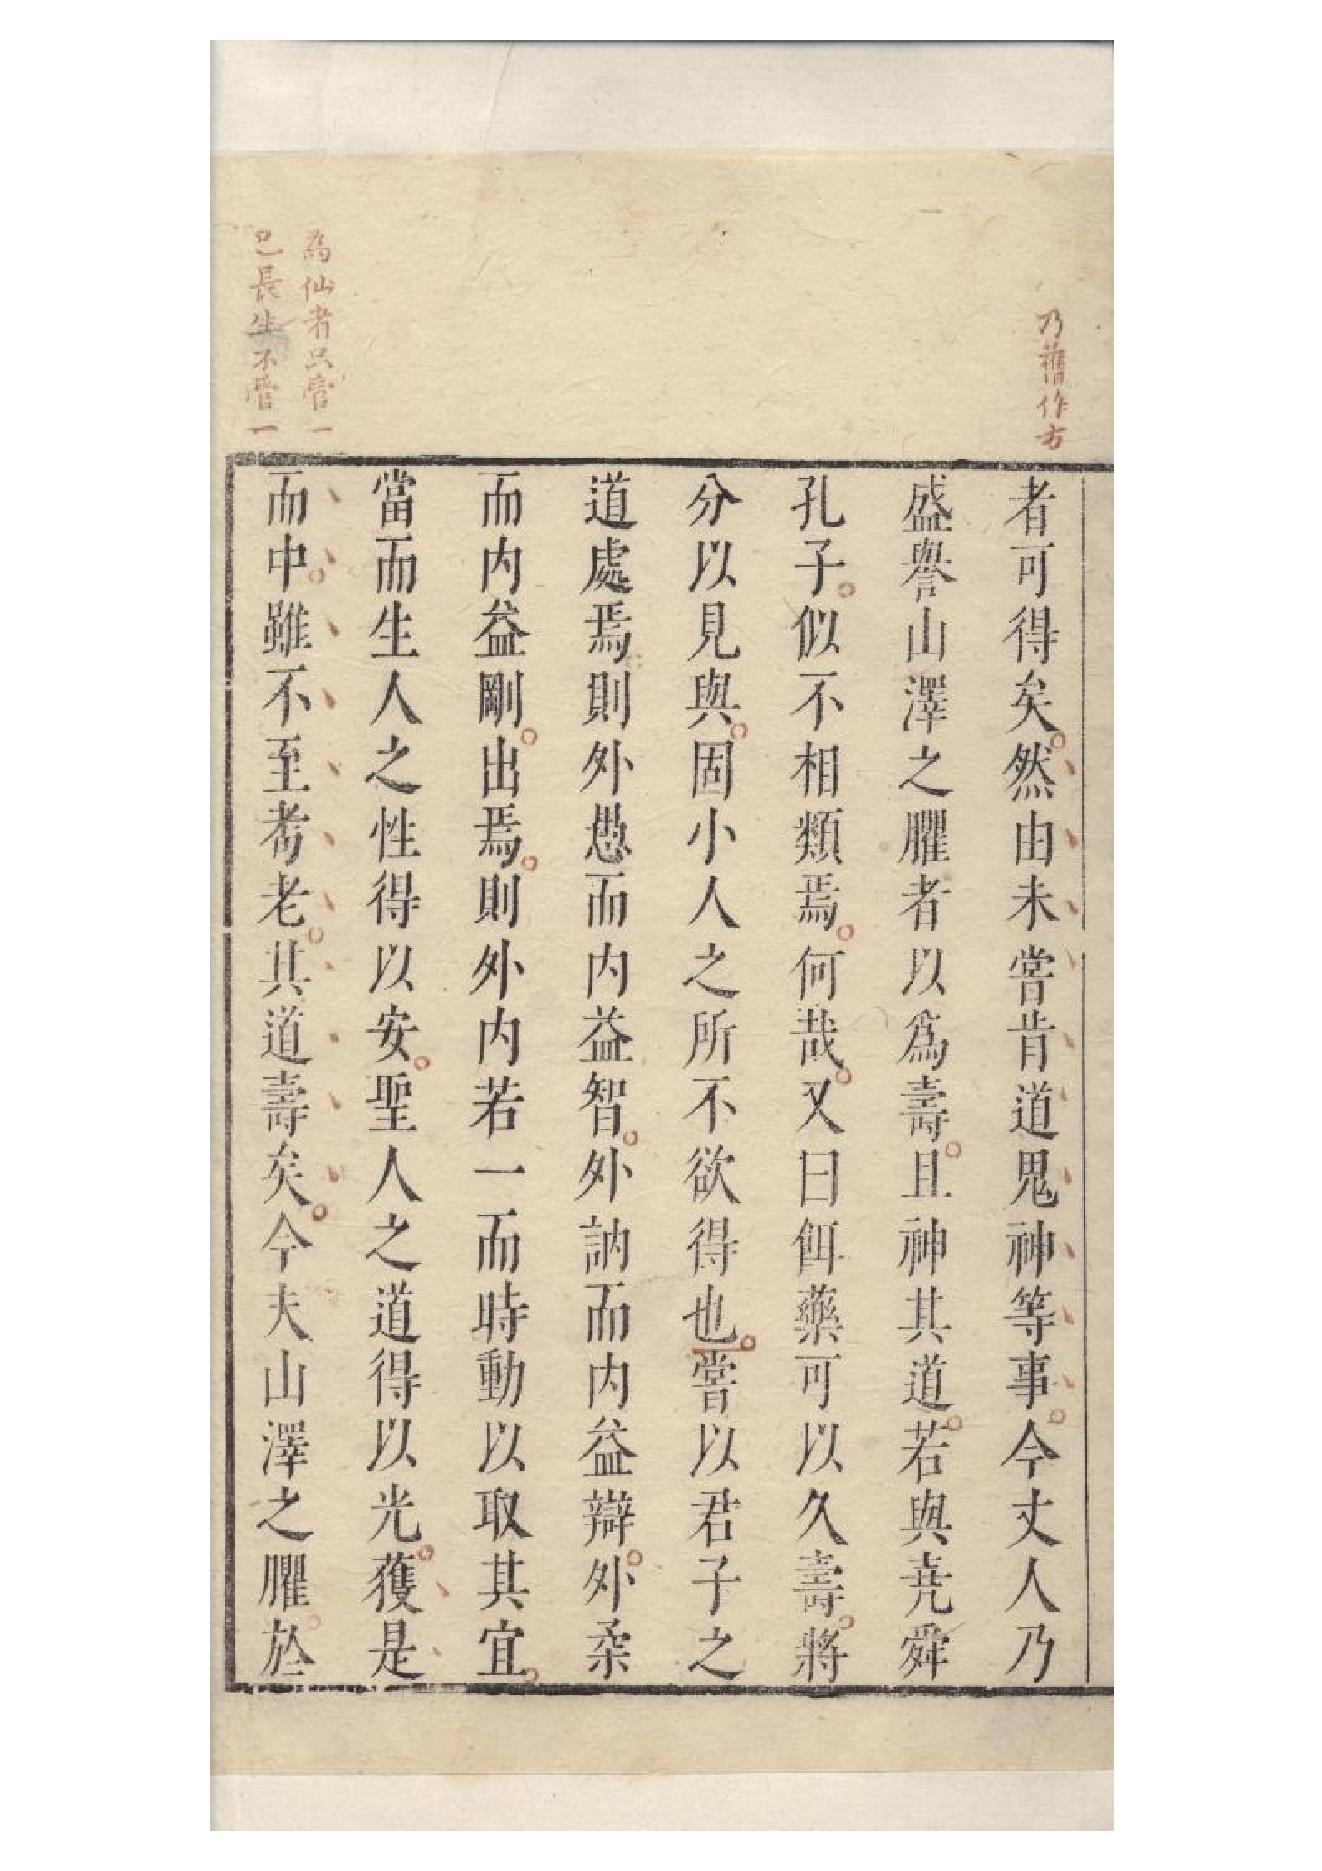 乃舊作方
者可得矣然由未嘗肯道鬼神等事今丈人乃
盛譽山澤之臞者以爲壽且神其道若與堯舜
孔子似不相類焉何哉又曰餌藥可以久壽將
分以見與固小人之所不欲得也嘗以君子之
道處焉則外愚而内益智外訥而内益辯外柔
而内益剛出焉則外内若一而時動以取其宜
當而生人之性得以安聖人之道得以光獲是
爲仙者只管一
已長生不管一
而中雖不至耉老其道壽矣今夫山澤之臞於